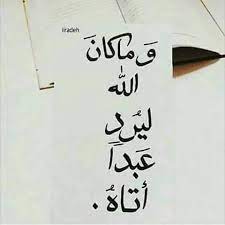 iradeh
وَ ما كانَ
الله
ليُرد
عَبداً
أتاهُ .